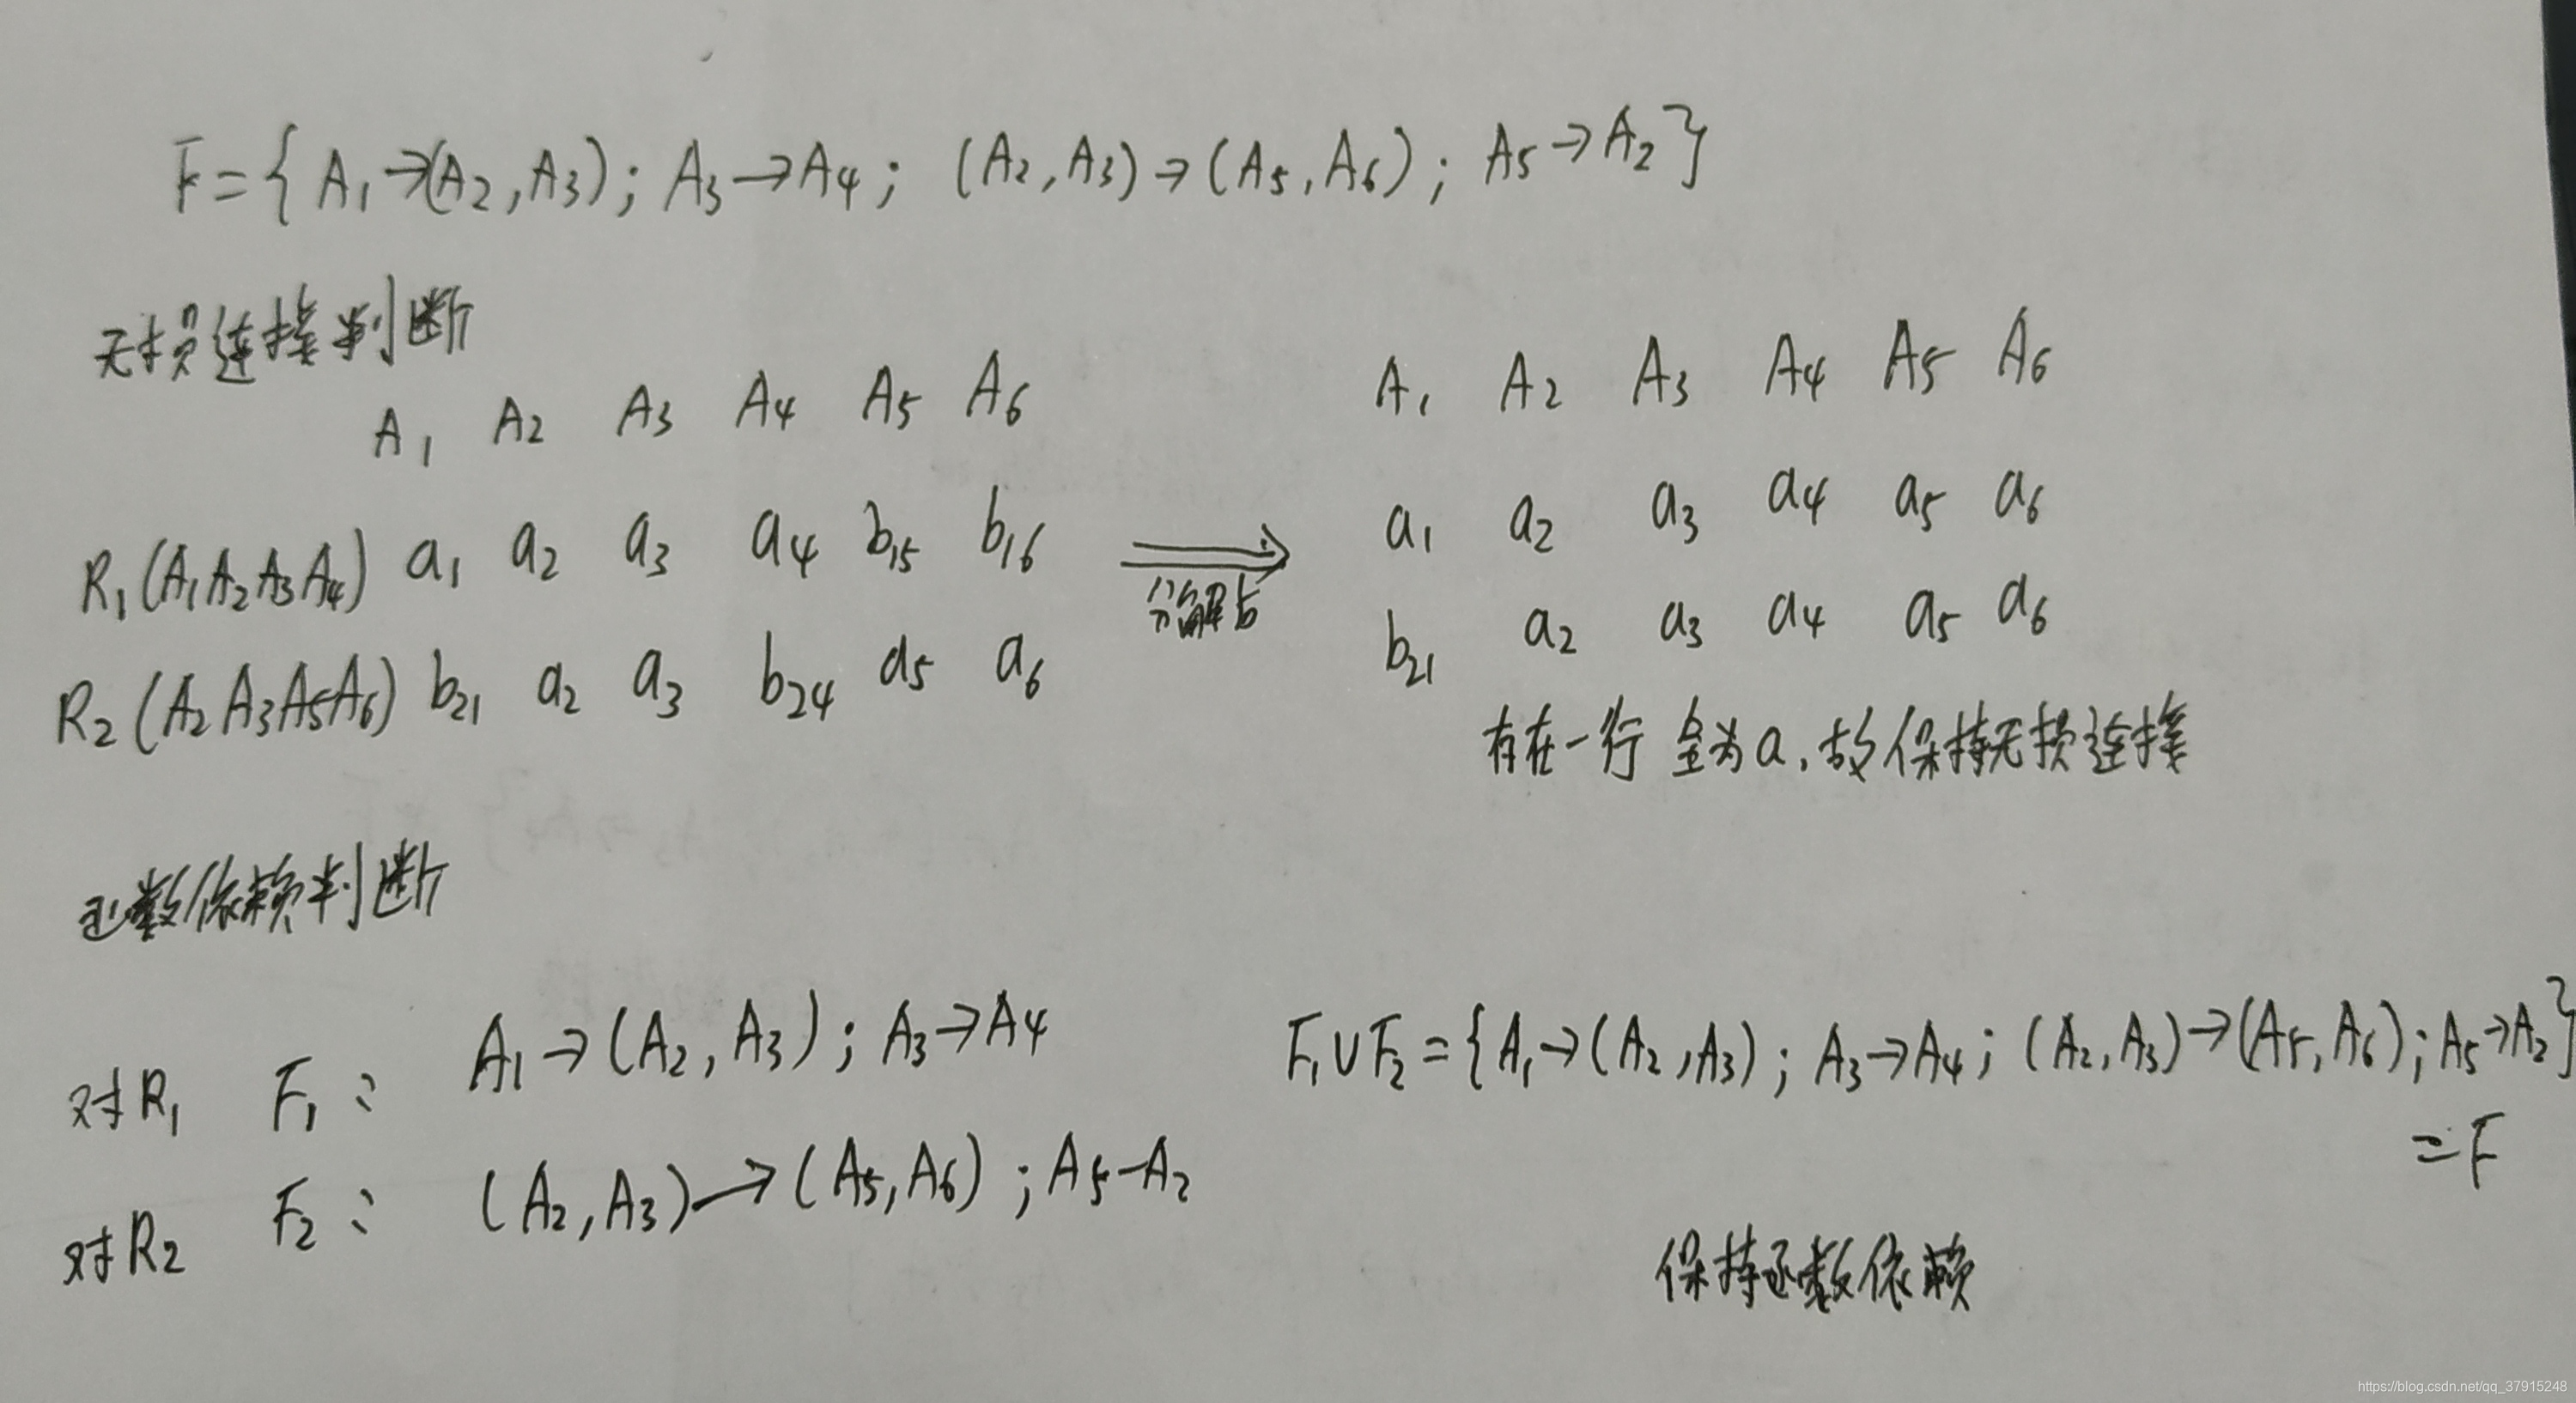 F={ A₁→(A₂,A₃); A₃→A₄; (A₂,A₃)→(A₅,A₆); A₅→A₂}
无损连接判断
A₁ A₂ A₃ A₄ A₅ A₆
R₁(A₁A₂A₃A₄) a₁ a₂ a₃ a₄ b₁₅ b₁₆
R₂(A₂A₃A₅A₆) b₂₁ a₂ a₃ b₂₄ a₅ a₆
⇒
分解后
A₁ A₂ A₃ A₄ A₅ A₆
a₁ a₂ a₃ a₄ a₅ a₆
b₂₁ a₂ a₃ a₄ a₅ a₆
存在一行全为a,故保持无损连接
函数依赖判断
对R₁ F₁: A₁→(A₂,A₃); A₃→A₄
对R₂ F₂: (A₂,A₃)→(A₅,A₆);A₅-A₂
F₁∪F₂={A₁→(A₂,A₃); A₃→A₄; (A₂,A₃)→(A₅,A₆);A₅→A₂}
=F
保持函数依赖
https://blog.csdn.net/qq_37915248